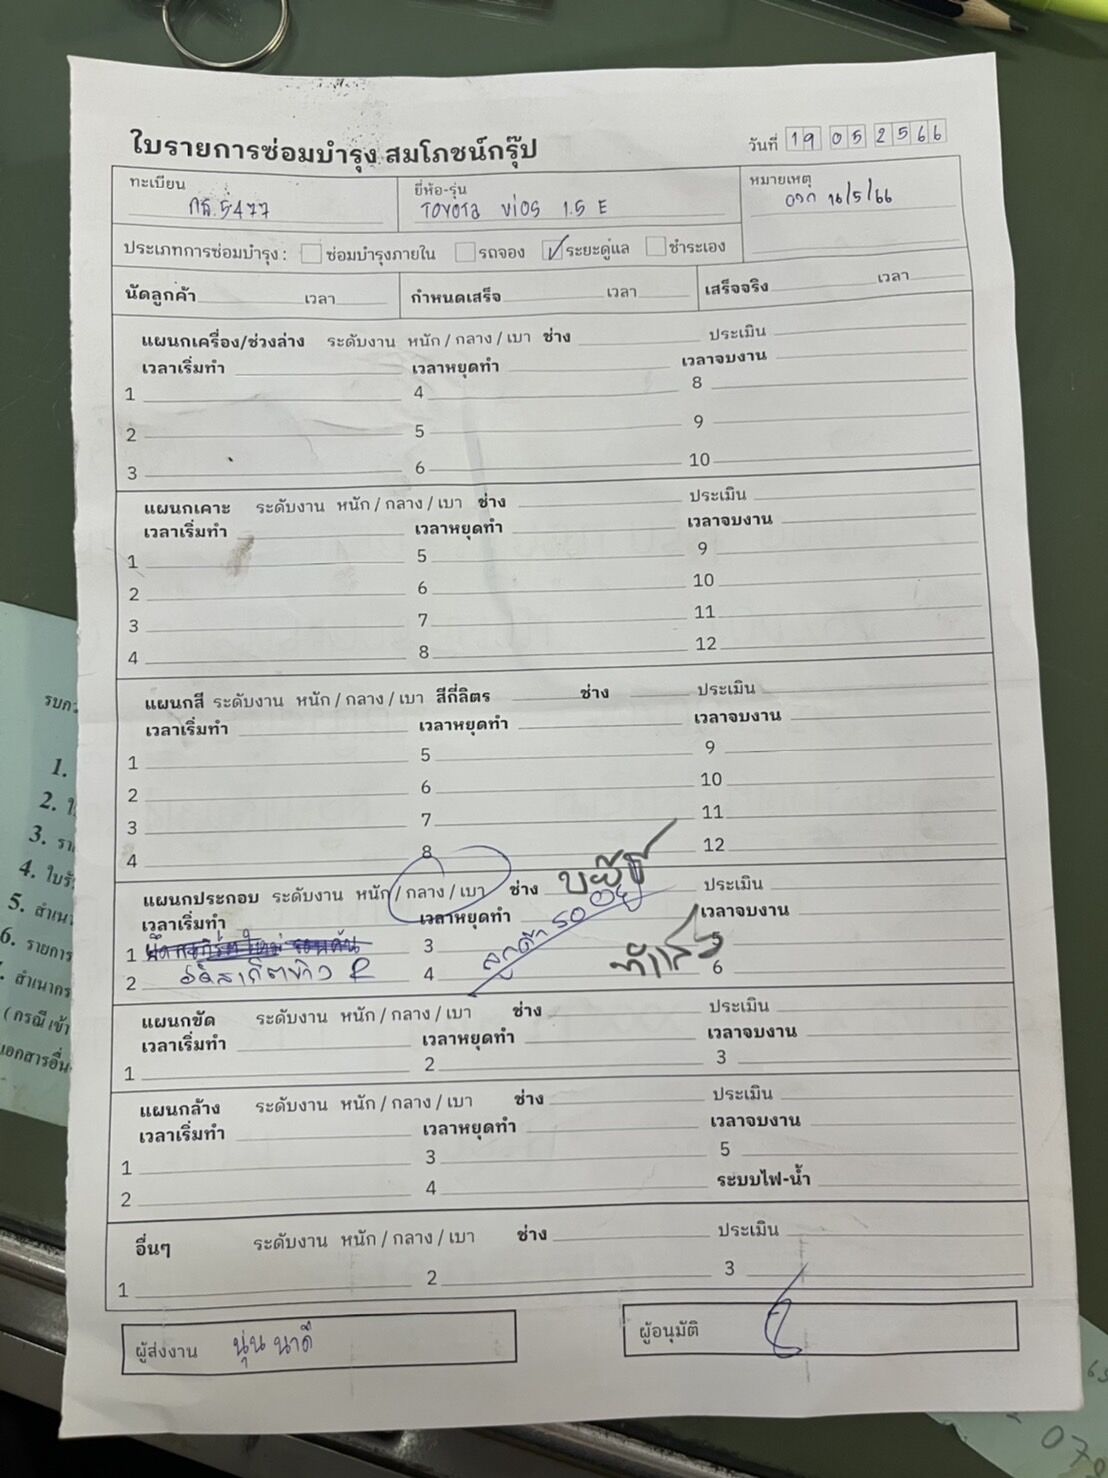 ใบรายการซ่อมบำรุง สมโภชน์กรุ๊ป
วันที่ 19 05 2566
ทะเบียน
5477
ยี่ห้อ-รุ่น
TOYOTA ViOS 1.5 E
หมายเหตุ
ออก 16/5/66
ประเภทการซ่อมบำรุง : ซ่อมบำรุงภายใน รถจอง ระยะดูแล ชำระเอง
นัดลูกค้า เวลา กำหนดเสร็จ เวลา เสร็จจริง เวลา
แผนกเครื่อง/ช่วงล่าง ระดับงาน หนัก / กลาง / เบา ช่าง ประเมิน
เวลาเริ่มทำ เวลาหยุดทำ เวลาจบงาน
1 4 8
2 5 9
3 6 10
แผนกเคาะ ระดับงาน หนัก / กลาง / เบา ช่าง ประเมิน
เวลาเริ่มทำ เวลาหยุดทำ เวลาจบงาน
1 5 9
2 6 10
3 7 11
4 8 12
แผนกสี ระดับงาน หนัก / กลาง / เบา สีกี่ลิตร ช่าง ประเมิน
เวลาเริ่มทำ เวลาหยุดทำ เวลาจบงาน
1 5 9
2 6 10
3 7 11
4 8 12
แผนกประกอบ ระดับงาน หนัก / กลาง / เบา ช่าง ประเมิน
เวลาเริ่มทำ เวลาหยุดทำ เวลาจบงาน
1 3 ลูกค้ารออยู่ 5
2 4 6
แผนกขัด ระดับงาน หนัก / กลาง / เบา ช่าง ประเมิน
เวลาเริ่มทำ เวลาหยุดทำ เวลาจบงาน
1 2 3
แผนกล้าง ระดับงาน หนัก / กลาง / เบา ช่าง ประเมิน
เวลาเริ่มทำ เวลาหยุดทำ เวลาจบงาน
1 3 5
2 4 ระบบไฟ-น้ำ
อื่นๆ ระดับงาน หนัก / กลาง / เบา ช่าง ประเมิน
1 2 3
ผู้ส่งงาน นุ่น นาดี
ผู้อนุมัติ